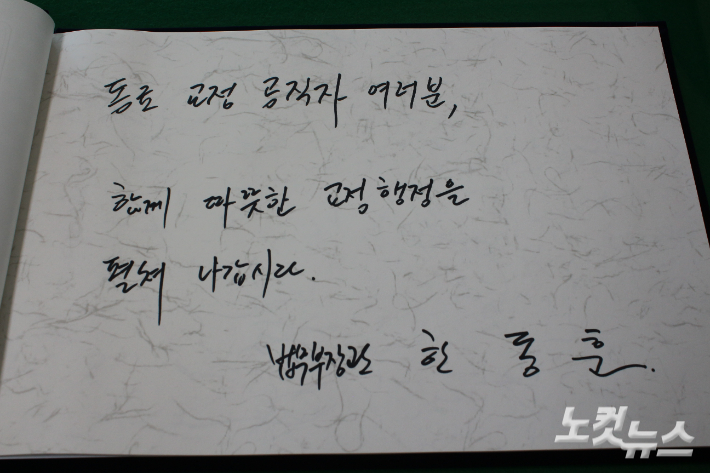 동료 교정 공직자 여러분,
함께 따뜻한 교정행정을
펼쳐 나갑시다.
법무부장관 한 동 훈.
노컷뉴스